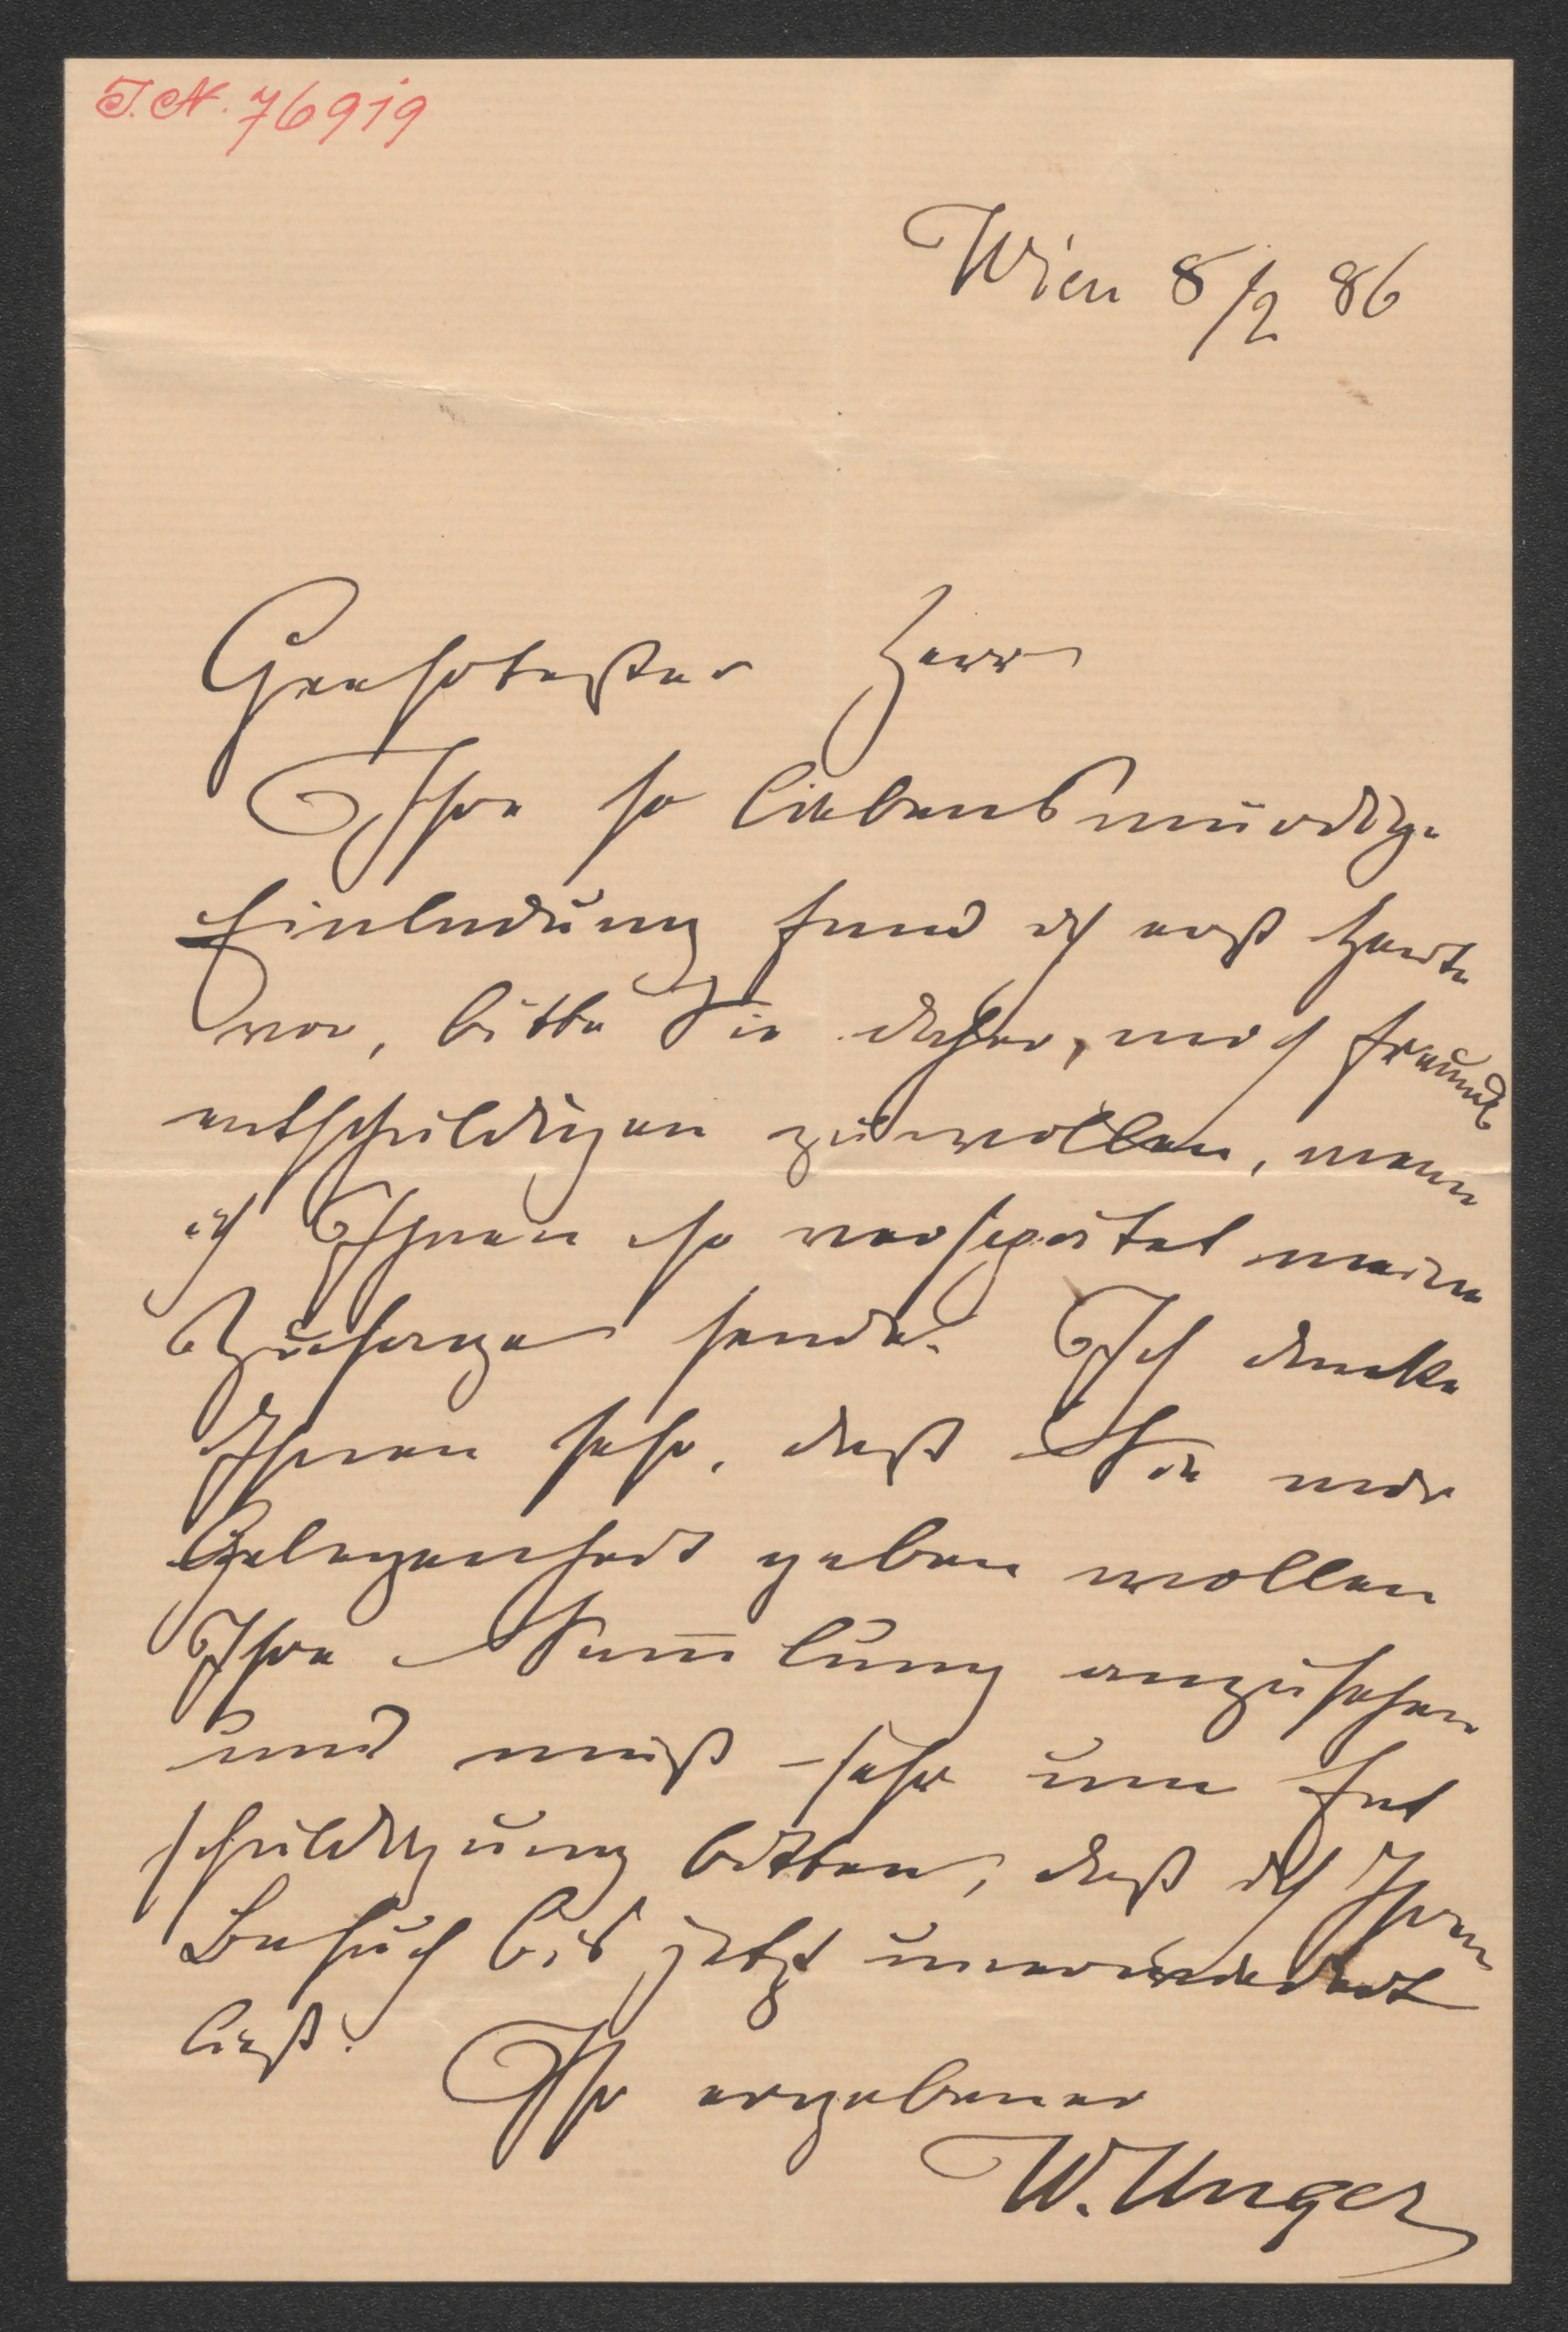 I.N. 76919
Wien 8/2 86
Geehrtester Herr
Ihre so liebenswürdige
Einladung fand ich erst heute
vor, bitte Sie daher, mich freundl
entschuldigen zu wollen, wenn
ich Ihnen so verspätet meine
Zusage sende. Ich danke
Ihnen sehr, daß Sie mir
Gelegenheit geben wollen
Ihre Sam̅lung anzusehen
und muß sehr um Ent
schuldigung bitten, daß ich Ihren
Besuch bis jetzt unerwiedert
ließ.
Ihr ergebener
W. Unger